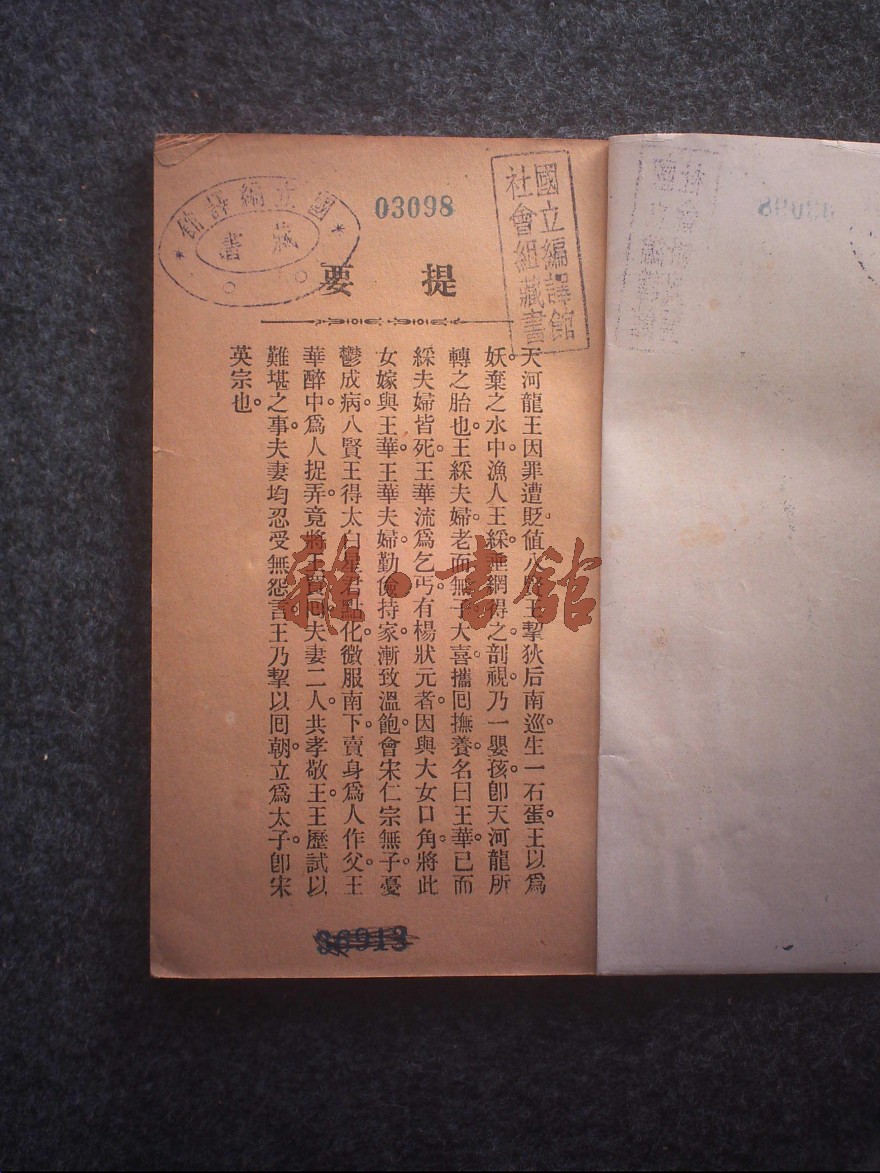 國立編譯館
藏書
03098
國立編譯館
社會組藏書
提要
天河龍王因罪遭貶。值八賢王挈狄后南巡。生一石蛋。王以爲
妖。棄之水中。漁人王綵垂網得之。剖視。乃一嬰孩。卽天河龍所
轉之胎也。王綵夫婦。老而無子。大喜。攜囘撫養。名曰王華。已而
綵夫婦皆死。王華流爲乞丐。有楊狀元者。因與大女口角。將此
女嫁與王華。王華夫婦。勤儉持家。漸致溫飽。會宋仁宗無子。憂
鬱成病。八賢王得太白星君點化。微服南下。賣身爲人作父。王
華醉中。爲人捉弄。竟將王買囘。夫妻二人。共孝敬王。王歷試以
難堪之事。夫妻均忍受無怨言。王乃挈以囘朝。立爲太子。卽宋
英宗也。
雜·書館
36913
03098